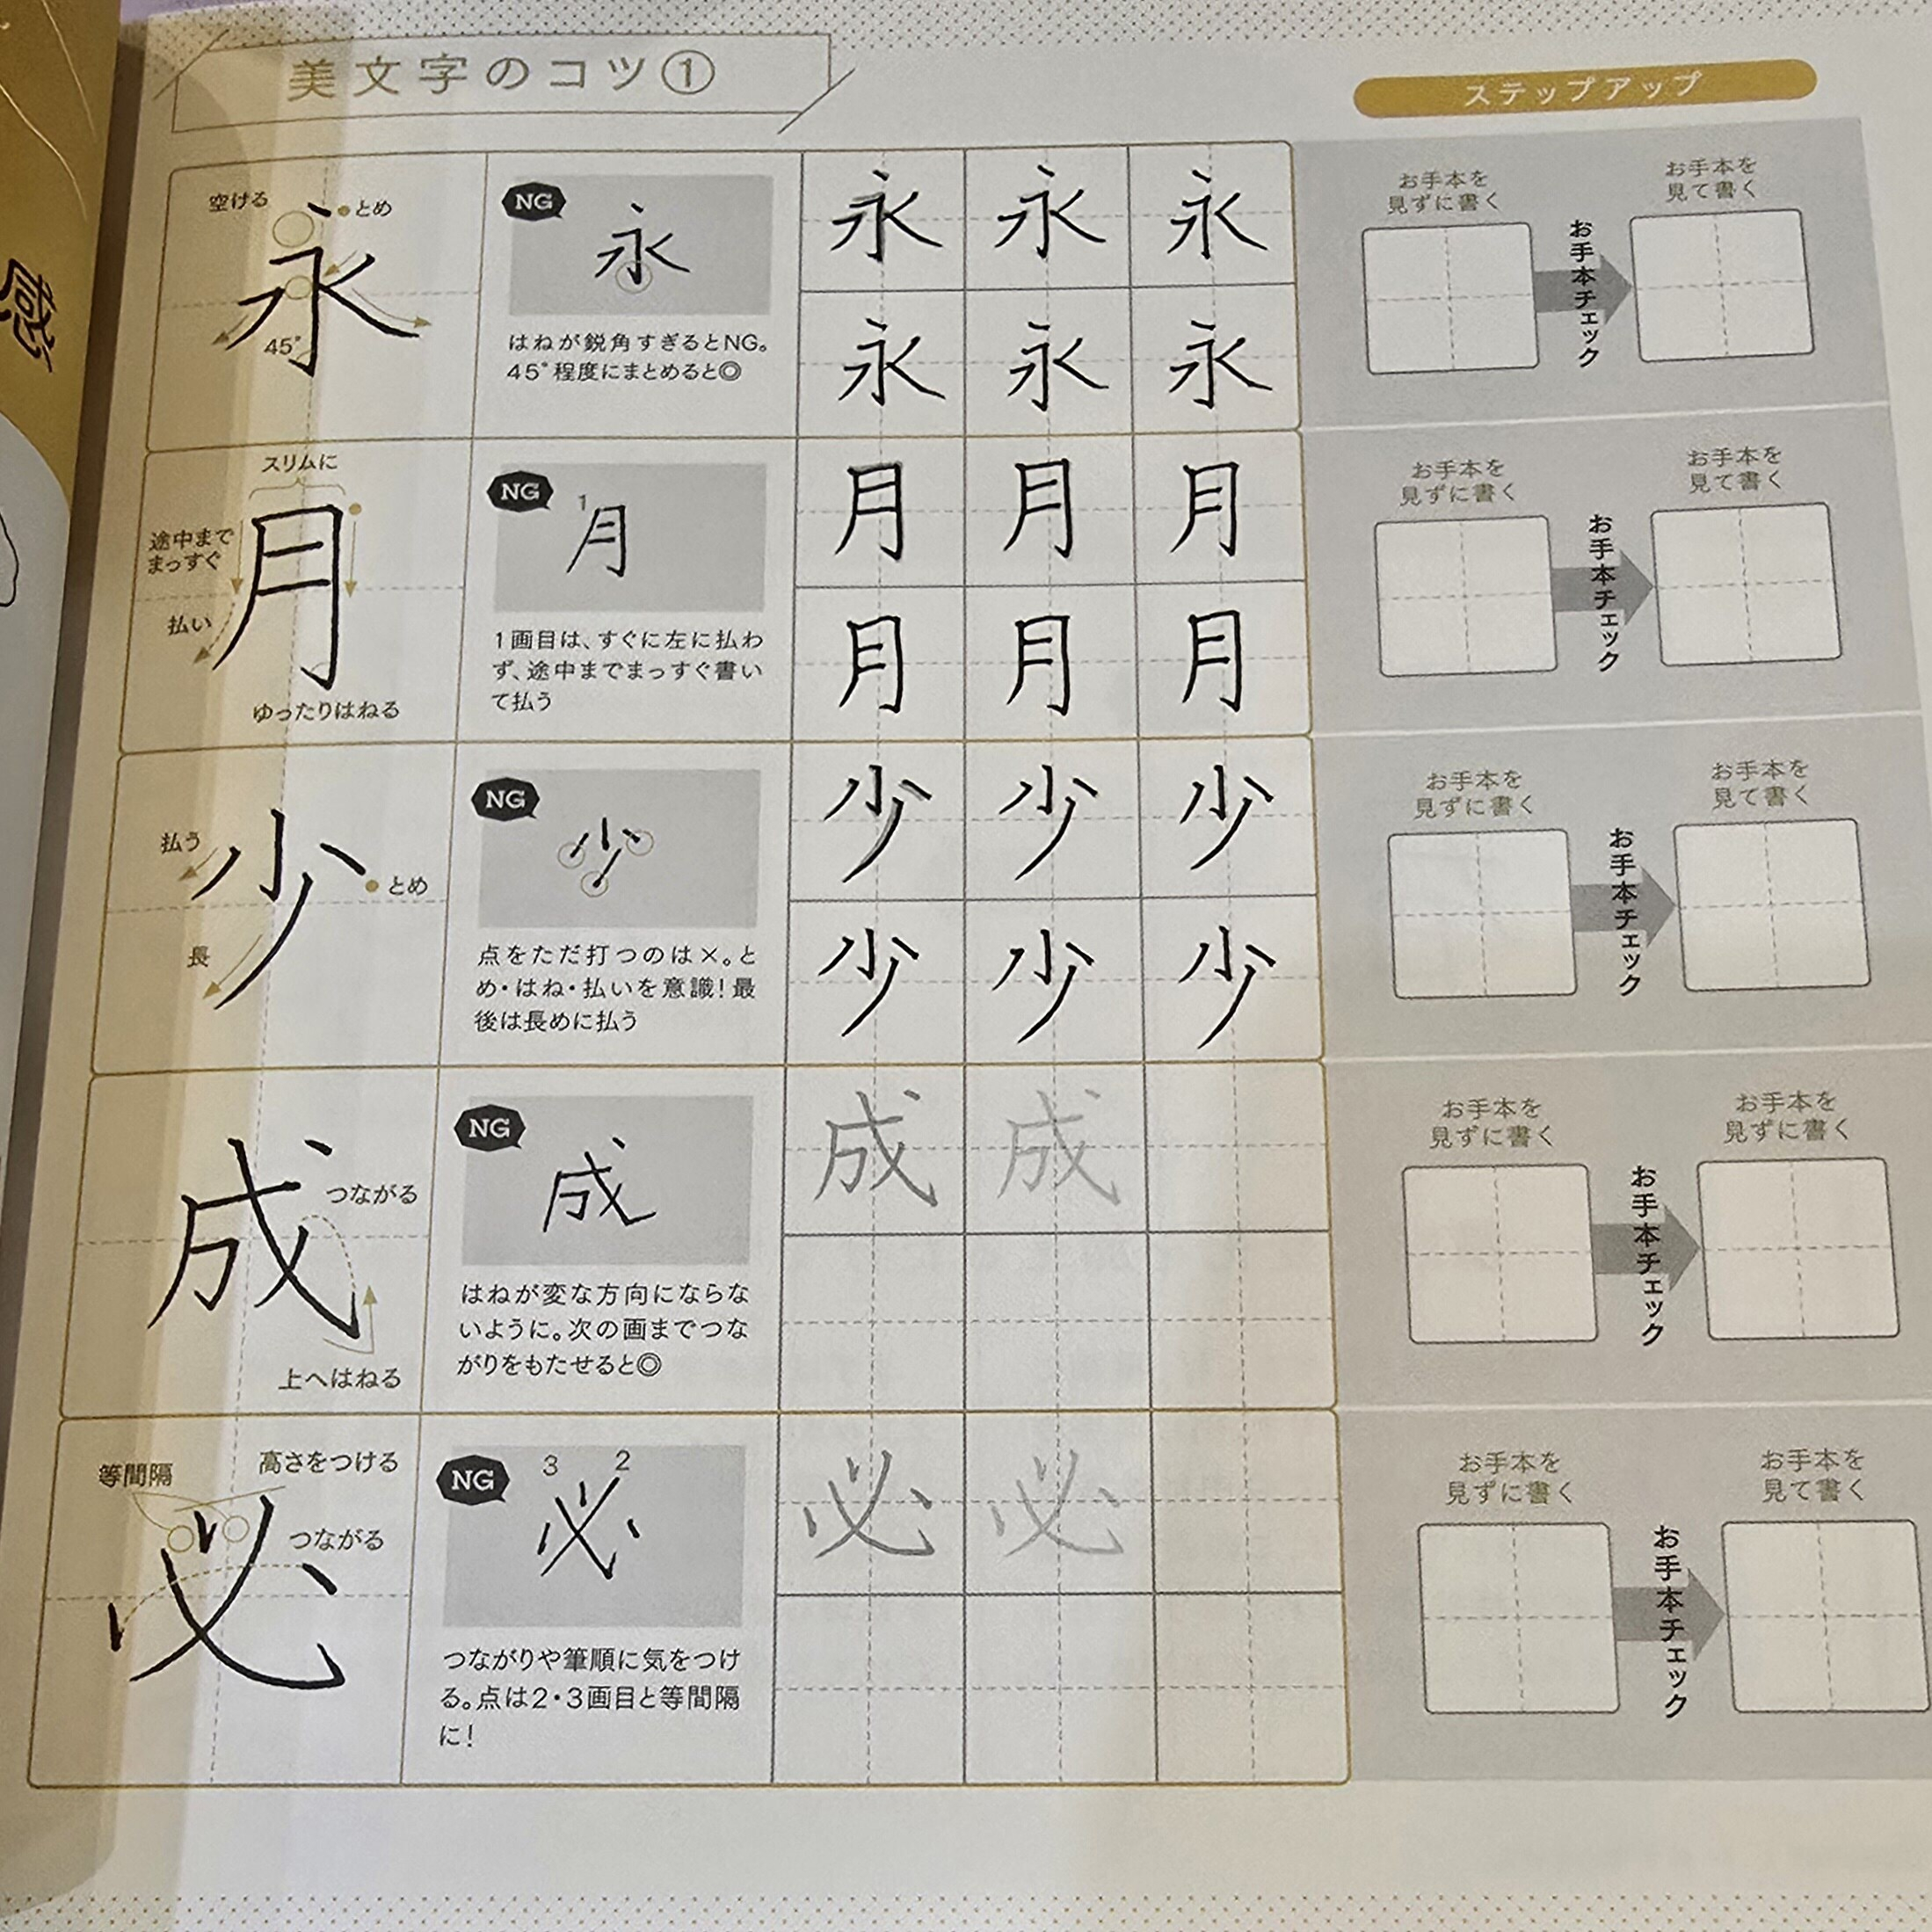 美文字のコツ①
ステップアップ
空ける
とめ
永
45°
NG
永
はねが鋭角すぎるとNG。
45°程度にまとめると◎
永 永 永
永 永 永
お手本を
見ずに書く
お手本チェック
お手本を
見て書く
スリムに
途中まで
まっすぐ
月
払い
ゆったりはねる
NG
1
月
1画目は、すぐに左に払わ
ず、途中までまっすぐ書い
て払う
月 月 月
月 月 月
お手本を
見ずに書く
お手本チェック
お手本を
見て書く
払う
少
とめ
長
NG
少
点をただ打つのは×。と
め・はね・払いを意識！最
後は長めに払う
少 少 少
少 少 少
お手本を
見ずに書く
お手本チェック
お手本を
見て書く
成
つながる
上へはねる
NG
成
はねが変な方向にならな
いように。次の画までつな
がりをもたせると◎
成 成
お手本を
見ずに書く
お手本チェック
お手本を
見ずに書く
等間隔
高さをつける
つながる
必
NG
3 2
必
つながりや筆順に気をつけ
る。点は2・3画目と等間隔
に！
必 必
お手本を
見ずに書く
お手本チェック
お手本を
見て書く
感